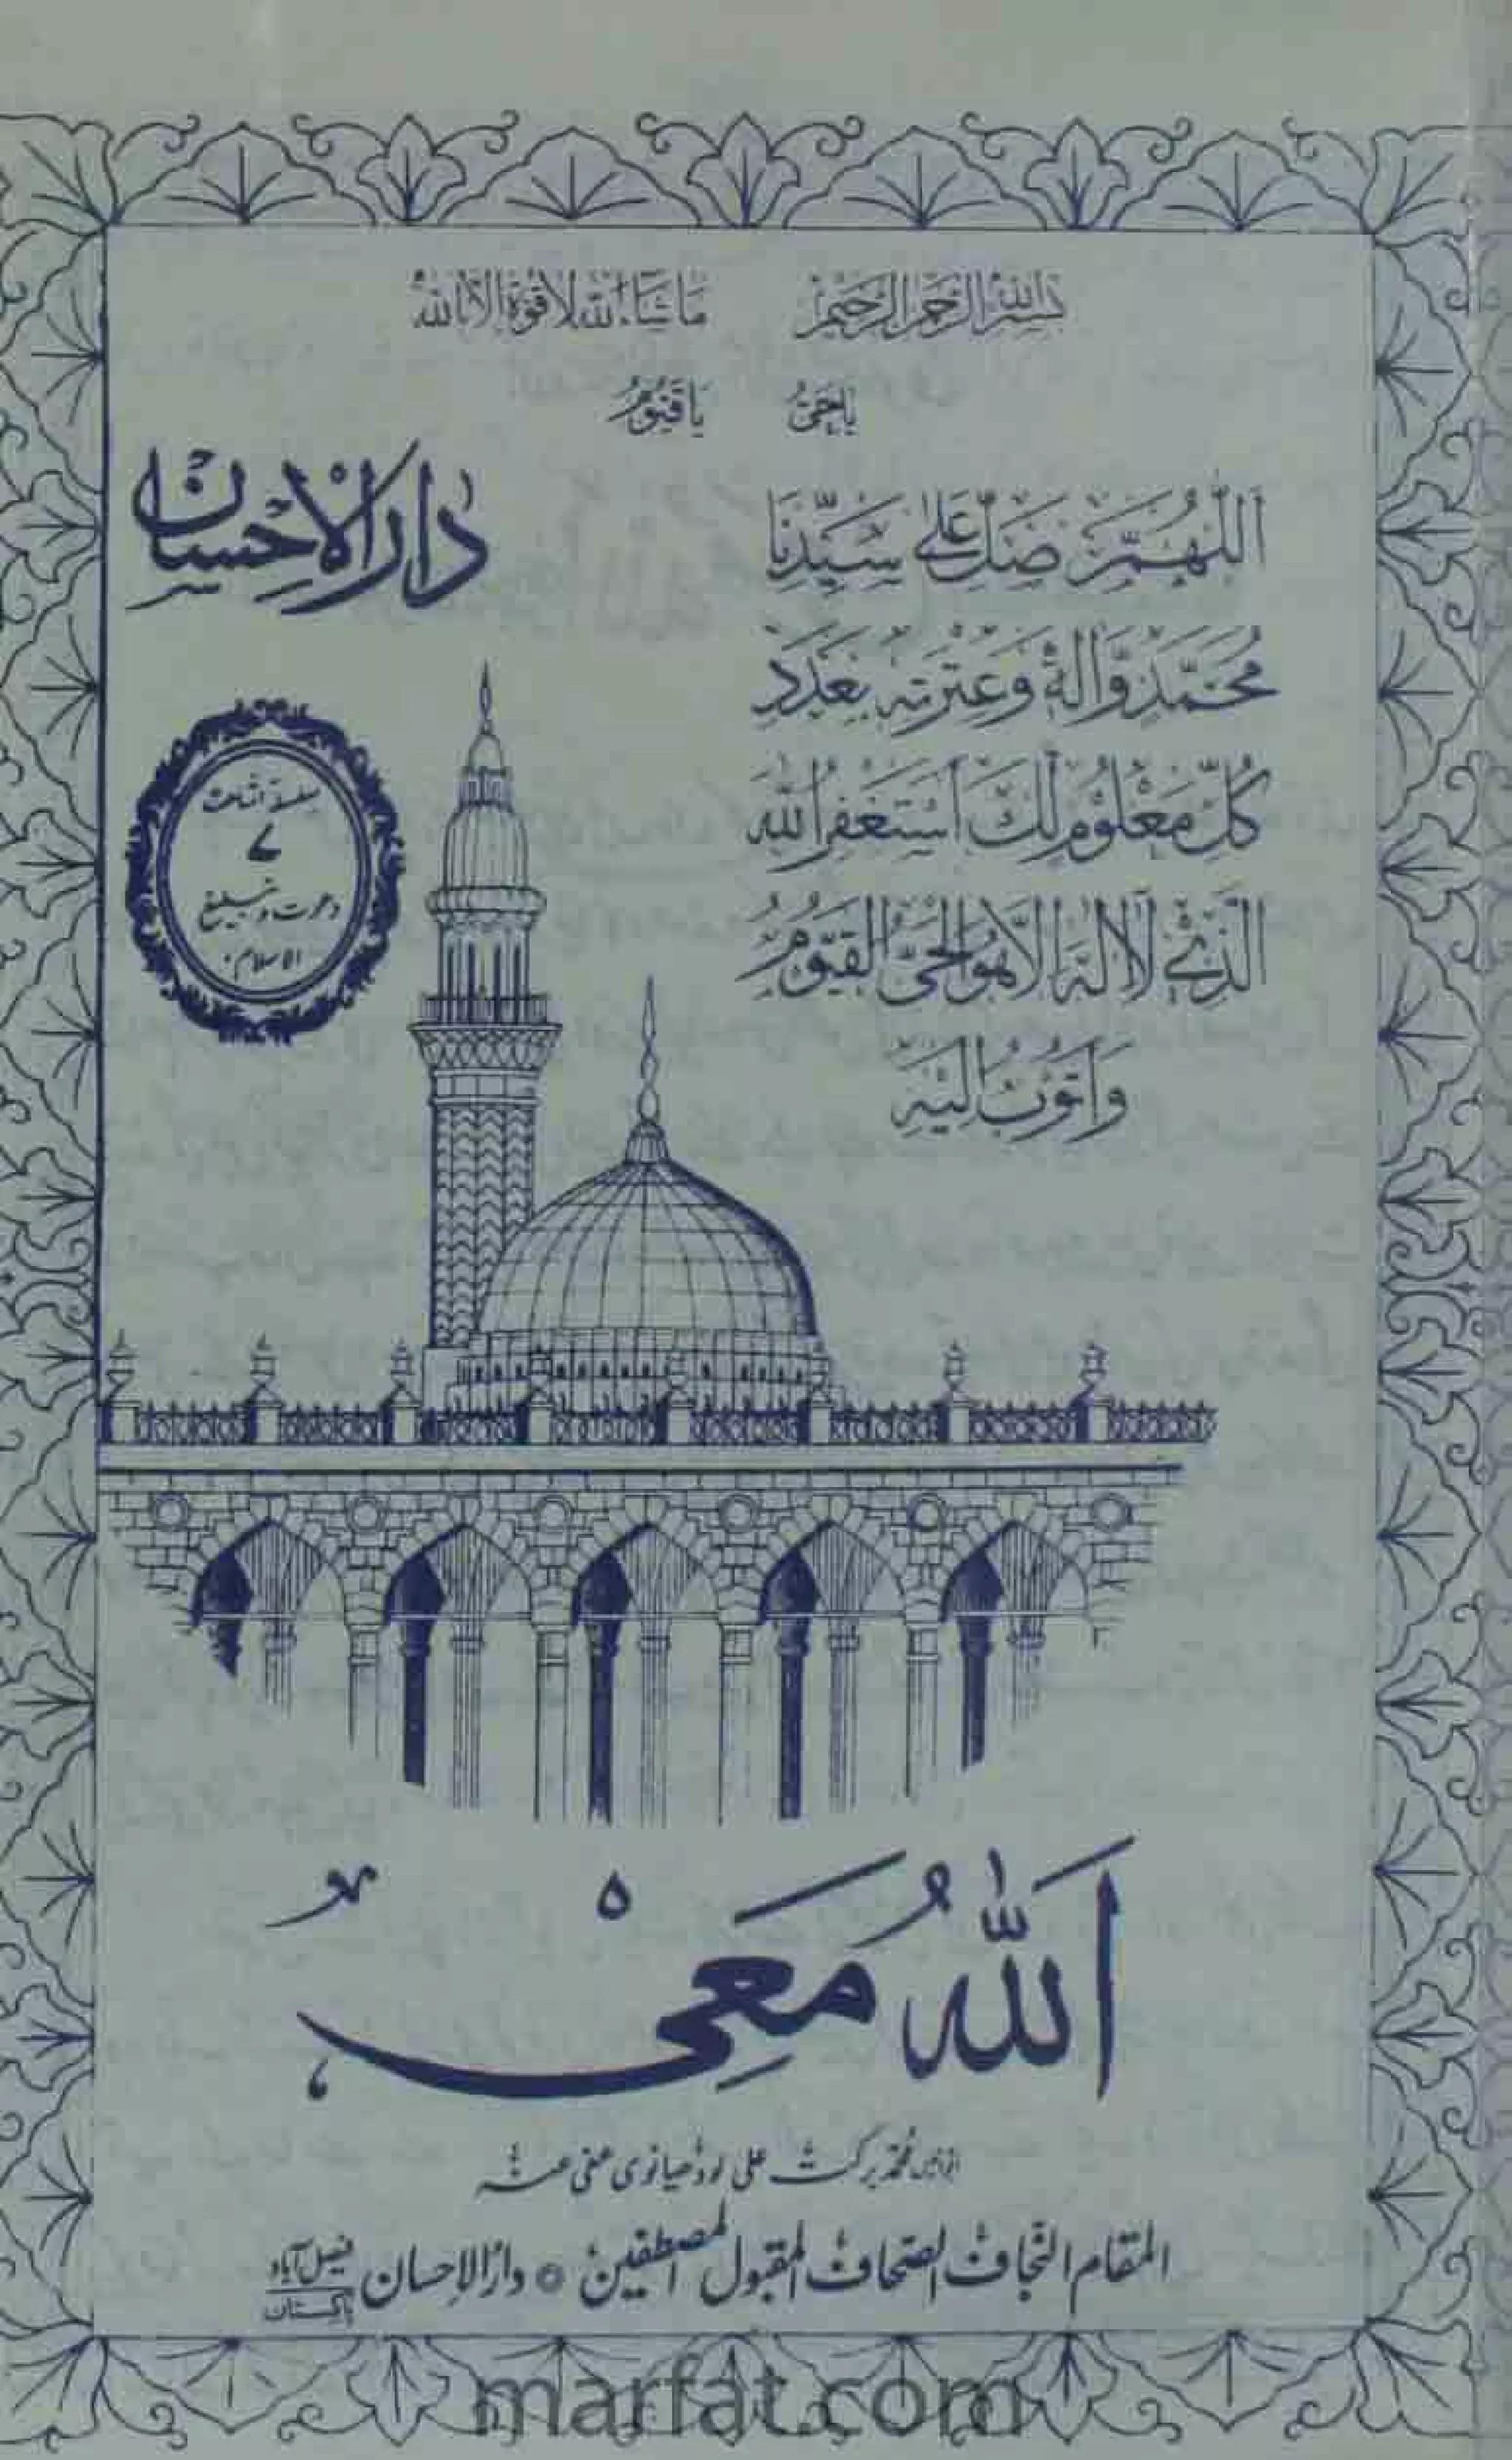 بسم الله الرحمن الرحيم ما شاء الله لا قوة الا بالله
يا حي يا قيوم
دار الاحسان
اَللّٰهُمَّ صَلِّ عَلٰى سَيِّدِنَا
مُحَمَّدٍ وَّاٰلِهٖ وَعِتْرَتِهٖ بِعَدَدِ
كُلِّ مَعْلُوْمٍ لَّكَ اَسْتَغْفِرُ اللهَ
الَّذِيْ لَا اِلٰهَ اِلَّا هُوَ الْحَيُّ الْقَيُّوْمُ
وَاَتُوْبُ اِلَيْهِ
سلسلۂ اشاعت
۷
دعوت و تبلیغ
الاسلام
اَللّٰهُ مَعِيْ
محمد برکت علی لودھیانوی عفی عنہ
المقام النجاف الصحاف المقبول المصطفین دارالاحسان فیصل آباد
پاکستان
marfat.com